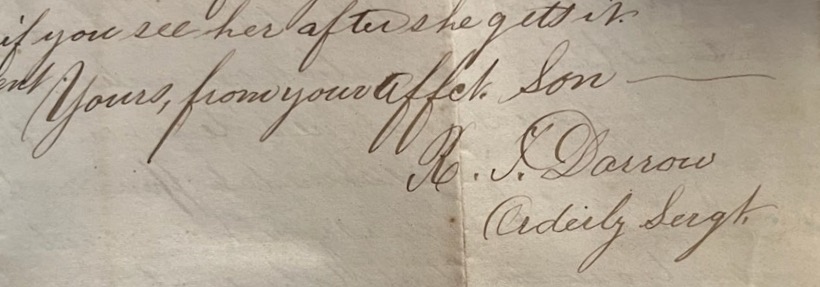 if you see her after she gets it.
Yours, from your affct. Son
R. I. Darrow
Orderly Sergt.